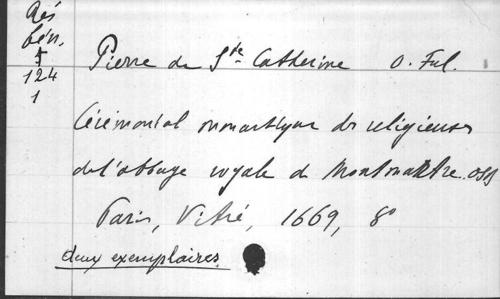 Rés
bén.
F
124
1
Pierre de Ste Catherine O. Ful.
Cérémonial monastique des religieuses
de l'abbaye royale de Montmartre. OSB
Paris, Vitré, 1669, 8°
deux exemplaires.